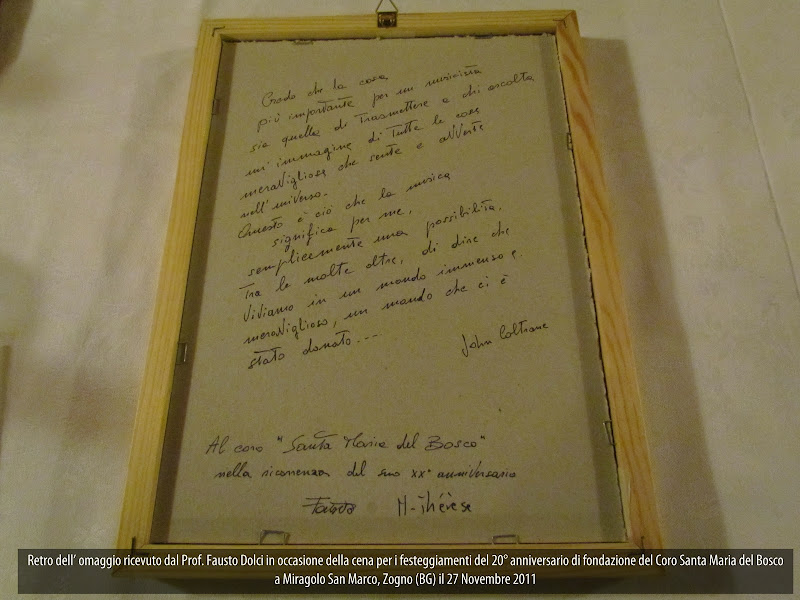 Credo che la cosa
più importante per un musicista
sia quella di Trasmettere a chi ascolta
un'immagine di Tutte le cose
meravigliose che sente e avverte
nell'universo.
Questo è ciò che la musica
significa per me,
semplicemente una possibilità,
Tra le molte altre, di dire che
viviamo in un mondo immenso e
meraviglioso, un mondo che ci è
stato donato...
John Coltrane
Al coro "Santa Maria del Bosco"
nella ricorrenza del suo XX° anniversario
Fausto M-Thérèse
Retro dell' omaggio ricevuto dal Prof. Fausto Dolci in occasione della cena per i festeggiamenti del 20° anniversario di fondazione del Coro Santa Maria del Bosco
a Miragolo San Marco, Zogno (BG) il 27 Novembre 2011